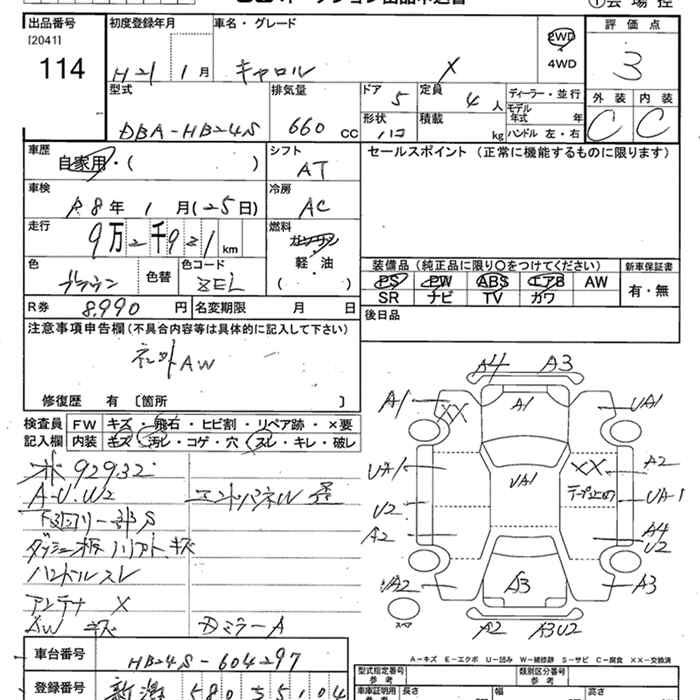 出品番号
[2041]
114
初度登録年月
H21 1月
車名・グレード
キャロル
X
2WD
4WD
評価点
3
外装 内装
C C
型式
DBA-HB24S
排気量
660 CC
ドア 5
定員 4人
形状 ハコ
積載 kg
ディーラー・並行
モデル年式 年
ハンドル 左・右
車歴
自家用・( )
シフト
AT
セールスポイント (正常に機能するものに限ります)
車検
R8年 1月(25日)
冷房
AC
走行
9万2千921 km
燃料
ガソリン
軽・油
( )
色
ブラウン
色替
色コード
ZEL
装備品 (純正品に限り○をつけてください)
PS PW ABS エアB AW
SR ナビ TV カワ
新車保証書
有・無
R券 8,990 円
名変期限 月 日
後日品
注意事項申告欄(不具合内容等は具体的に記入して下さい)
ネット AW
修復歴 有 〔箇所 〕
検査員
記入欄
FW キズ・飛石・ヒビ割・リペア跡・×要
内装 キズ・汚レ・コゲ・穴・スレ・キレ・破レ
92932
A・U・W2
エンドパネルW
下回り一部S
ハンドルスレ
アンテナ X
AW キズ
DミラーA
A4 A3
A1 XX A1 UA1
UA1 UA1 XX A2
テープ止め
U2 UA1
A2 A4
U2
UA2 A3 A3
スペア
A2 A3U2
A-キズ E-エクボ U-凹み W-補修跡 S-サビ C-腐食 XX-交換済
車台番号
HB24S-604297
登録番号
新潟 580 5104
型式指定番号
参考
類別区分番号
参考
車庫証明用
参考
長さ
幅
高さ